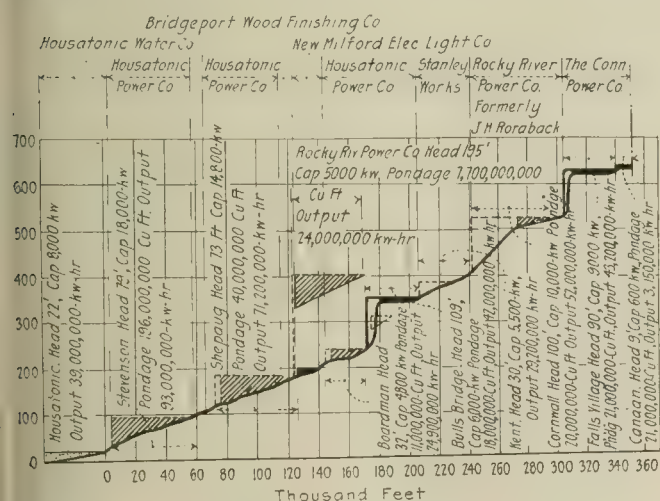 Bridgeport Wood Finishing Co
Housatonic Water Co
New Milford Elec Light Co
Housatonic
Power Co
Housatonic
Power Co
Housatonic
Power Co
Stanley
Works
Rocky River
Power Co.
Formerly
J H Roraback
The Conn
Power Co.
700
600
500
400
300
200
100
0
Housatonic. Head 22', Cap 8,000 kw
Output 39,000,000-kw-hr
Stevenson Head 79', Cap 18,000-kw
Pondage 196,000,000 Cu Ft, Output
93,000,000-kw-hr
Shepaug Head 73 Ft Cap 14,800-kw
Pondage 40,000,000 Cu Ft
Output 71,200,000-kw-hr
Rocky Riv Power Co Head 195'
Cap 5000 kw, Pondage 7,700,000,000
Cu Ft
Output
24,000,000 kw-hr
Boardman Head
32', Cap 4800 kw Pondage
11,000,000-Cu Ft, Output
24,900,000 kw-hr
Bulls Bridge. Head 109',
Cap 6,000-kw Pondage
18,000,000-Cu Ft, Output 42,000,000 kw-hr
Kent. Head 30', Cap 5,500-kw,
Output 29,200,000 kw-hr
Cornwall Head 100', Cap 10,000-kw Pondage
20,000,000-Cu Ft Output 52,000,000 kw-hr
Falls Village Head 90', Cap 9000 kw,
Phdg 21,000,000 Cu Ft. Output 43,200,000-kw-hr
Canaan. Head 9', Cap 600 kw, Pondage
21,000,000 Cu Ft, Output 3,150,000 kw-hr
0 20 40 60 80 100 120 140 160 180 200 220 240 260 280 300 320 340 360
Thousand Feet